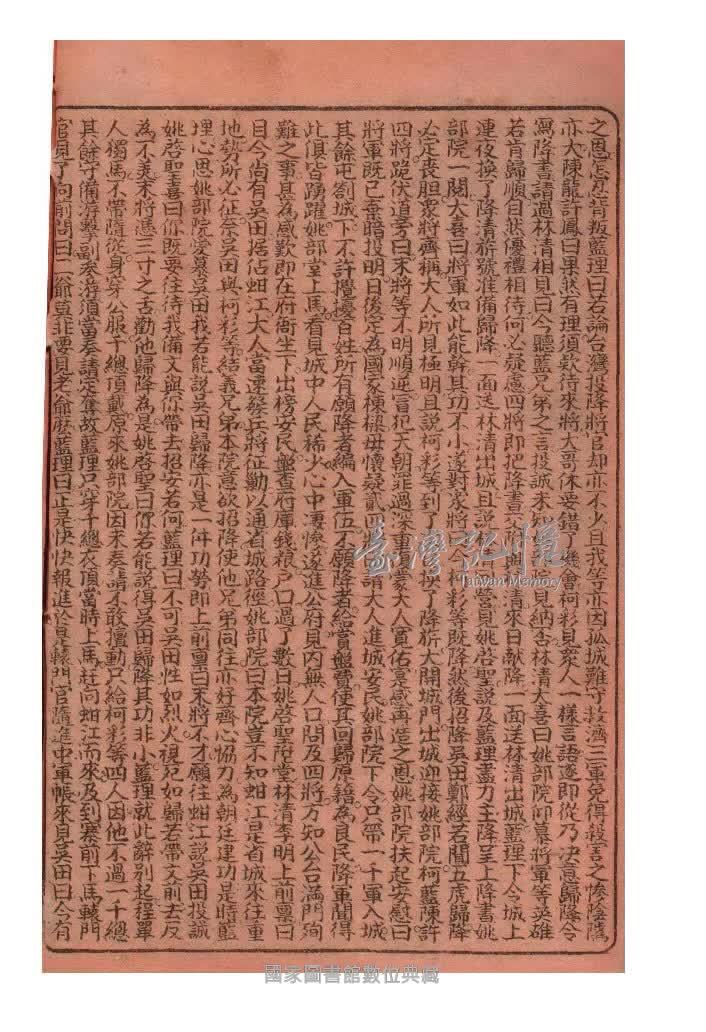 之恩怎忍背叛藍理曰若論台灣投降將官却亦不少且我等亦因孤城難守救濟三軍免得殺害之慘陰隲
亦大陳龍許鳳曰果然有理須欵待來將大哥休要錯了機會柯彩見眾人一樣言語遂即從乃決意歸降令
寫降書請過林清相見曰今聽藍兄弟之言投誠未知部院見納否林清大喜曰姚部院仰慕將軍等英雄
若肯歸順自然優禮相待何必疑慮四將即把降書交付與林清來日献降一面送林清出城藍理下令城上
連夜換了降清旂號准備歸降一面送林清出城且說營見姚啓聖說及藍理盡力主降呈上降書姚
部院一閱大喜曰將軍如此能幹其功不小遂對眾將今柯彩等既降然後招降吳田鄭經若聞五虎歸降
必定喪胆眾將齊稱大人所見極明且說柯彩等到了換了降旂大開城門出城迎接姚部院柯藍陳許
四將跪伏道旁曰末將等不明順逆冒犯天朝罪過深重蒙大人寬佑意感再造之恩姚部院扶起安慰曰
將軍既已棄暗投明日後定為國家棟樑毋懷疑貳四請大人進城安民姚部院下令只帶一千軍入城
其餘屯劄城下不許攪擾百姓所有願降者編入軍伍不願降者給賞盤費使其回歸原籍為良民降軍聞得
此俱皆踴躍姚部堂上馬看見城中人民稀少心中凄慘遂進公府見內無人口問及四將方知公台滿門殉
難之事甚為感歎即在府衙坐下出榜安民盤查府庫錢粮户口過了數日姚啓聖陞堂林清李明上前禀曰
目今尚有吳田据佔蚶江大人當速發兵將征勦以通省城路徑姚部院曰本院豈不知蚶江是省城來往重
地勢所必征奈吳田與柯彩等結義兄弟本院意欲招降使他兄弟同往亦好齊心協力為朝廷建功是時藍
理心思姚部院愛慕吳田我若能說吳田歸降亦是一件功勞即上前禀曰末將不才願往蚶江說吳田投誠
姚啓聖喜曰你既要往待我備文與你帶去招安若何藍理曰不可吳田性如烈火視死如歸若帶文前去反
為不美末將憑三寸之舌勸他歸降為是姚啓聖曰你若能說得吳田歸降其功非小藍理就此辭別起程單
人獨馬不帶隨從身穿公服千總頂戴原來姚部院因未奏請不敢擅動只給柯彩等四人因他不過一千總
其餘守備游擊副參游須當奏請定奪故藍理只穿千總衣頂當時上馬赶向蚶江而來及到寨前下馬轅門
官見了向前問曰二爺莫非要見老爺麽藍理曰正是快快報進於是轅門官隨進中軍帳來見吳田曰今有
臺灣記憶
Taiwan Memory
國家圖書館數位典藏